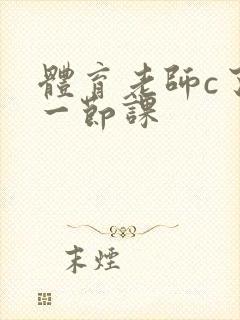 體育老師c了
一節課
末煙